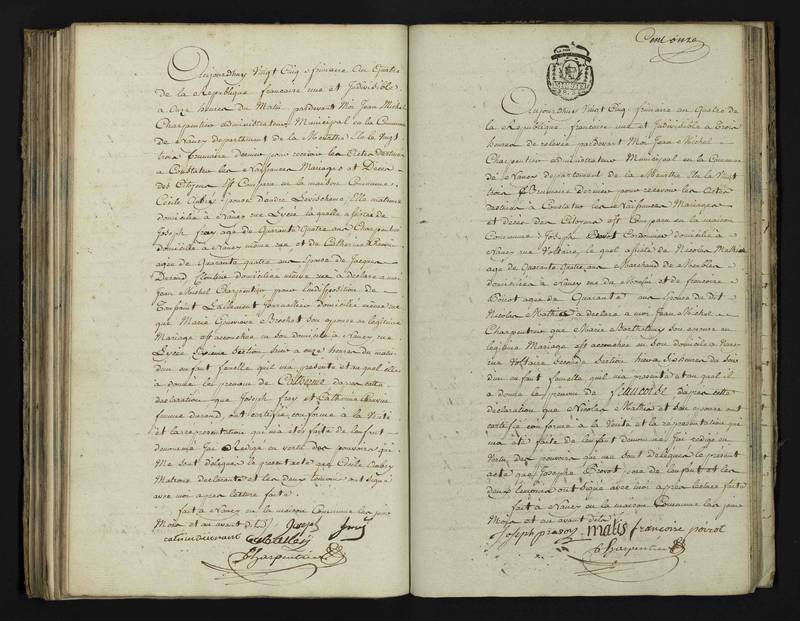 Aujourdhuy Vingt Cinq frimaire an Quatre
de la Republique francoise une et Indivisible
a onze heures du Matin pardevant Moi Jean Michel
Charpentier administrateur Municipal en la Commune
de Nancy departement de la Meurthe Elu le Vingt
trois frumaire dernier pour recevoir les Actes
a Constater les Naissances Mariages et Décès
des Citoyens est Comparu en la maison Commune
Cécile Aubry Epouse d'andré matrone
domiciliée a Nancy rue Lycée la quelle assistée de
Joseph frey agé de Quarante Quatre ans Charpentier
domicilié a Nancy même rue et de Catherine
agée de Quarante quatre ans Epouse de Jacques
Durand domiciliée même rue a déclaré a moi
Jean Michel Charpentier pour l'indisposition de
Toussaint Lallemant domicilié même rue
que Marie Genevieve Brochet son epouse en legitime
Mariage est accouchée en son domicile a Nancy rue
Lycée Section hier a onze heures du matin
d'un enfant femelle qu'il m'a presenté et auquel elle
a donné le prenom de Catherine dapres cette
declaration que Joseph frey et Catherine
femme durand ont certifié conforme a la Verité
et la representation qui m'a été faite de l'enfant
denommé Jai Redigé en vertu des pouvoirs qui
Me sont délégués le present acte que Cécile Aubry
Matrone declarante et les deux temoins ont signé
avec moi apres lecture faite
fait a Nancy en la maison Commune les jour
Mois et an avant dits Joseph frey
JCharpentier
Cent onze
Aujourdhuy Vingt Cinq frimaire an Quatre de
la Republique francoise une et Indivisible a Trois
heures de relevée pardevant Moi Jean Michel
Charpentier administrateur Municipal en la Commune
de Nancy departement de la Meurthe Elu le Vingt
trois Brumaire dernier pour recevoir les Actes
a Constater les Naissances Mariages
et décès des Citoyens est Comparu en la maison
Commune Joseph Cordonnier domicilié a
Nancy rue Voltaire, le quel assisté de Nicolas Mathis
agé de Quarante Quatre ans Marchand de Meubles
domicilié a Nancy rue du Moulin et de francoise
Poirot agée de Quarante ans Epouse dudit
Nicolas Mathis a déclaré a moi Jean Michel
Charpentier que Marie Barthelemy son epouse en
legitime Mariage est accouchée en son domicile a Nancy
rue Voltaire seconde Section hier a Six heures du soir
d'un enfant femelle qu'il m'a presenté et auquel il
a donné le prenom de francoise dapres cette
declaration que Nicolas Mathis et son epouse ont
certifié conforme a la Verité et la representation qui
m'a été faite de l'enfant denommé Jai redigé en
Vertu des pouvoirs qui me sont délégués le present
acte que Joseph Prevot pere de l'enfant et les
deux temoins ont signé avec moi apres lecture faite
fait a Nancy en la maison Commune les jour
Mois et an avant dits
Joseph prevot matis francoise poirot
JCharpentier